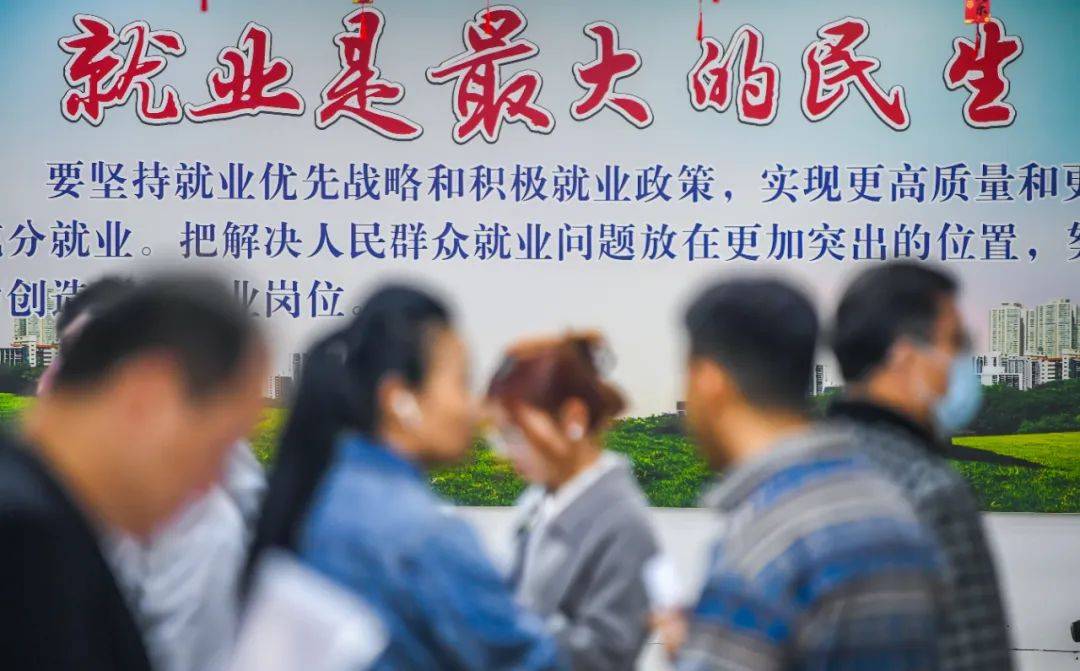 就业是最大的民生
要坚持就业优先战略和积极就业政策，实现更高质量和更
分就业。把解决人民群众就业问题放在更加突出的位置，努
创造 业岗位。